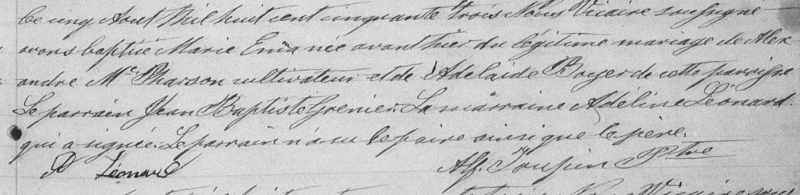 Le cinq Aout Mil huit cent cinquante trois Nous Vicaire soussigné
avons baptisé Marie Emma née avant hier du légitime mariage de Alex
andre Mc Pharson cultivateur et de Adelaide Boyer de cette paroisse
Le parrain Jean Baptiste Grenier. La marraine Adéline Léonard
qui a signée. Le parrain n'a su le faire ainsi que le père.
A Léonard Alf. Toupin Ptre